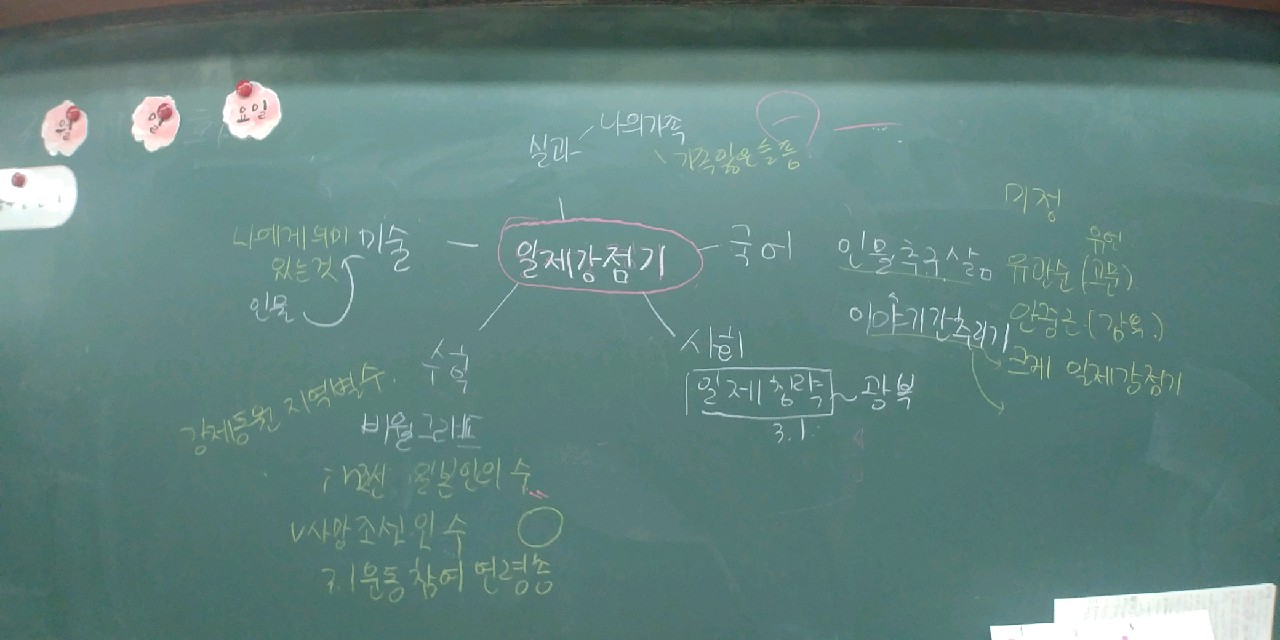 월 일 요일
실과 나의가족
가족잃은슬픔
미정
나에게 의미 있는것
미술
인물
일제강점기
국어
인물추구삶
이야기간추리기
유언
유관순 (고문)
안중근 (감옥)
크게 일제강점기
사회
일제침략 ~ 광복
3.1
수학
강제동원 지역별 수
비율그래프
일본인의 수
사망조선인 수
3.1운동 참여 연령층